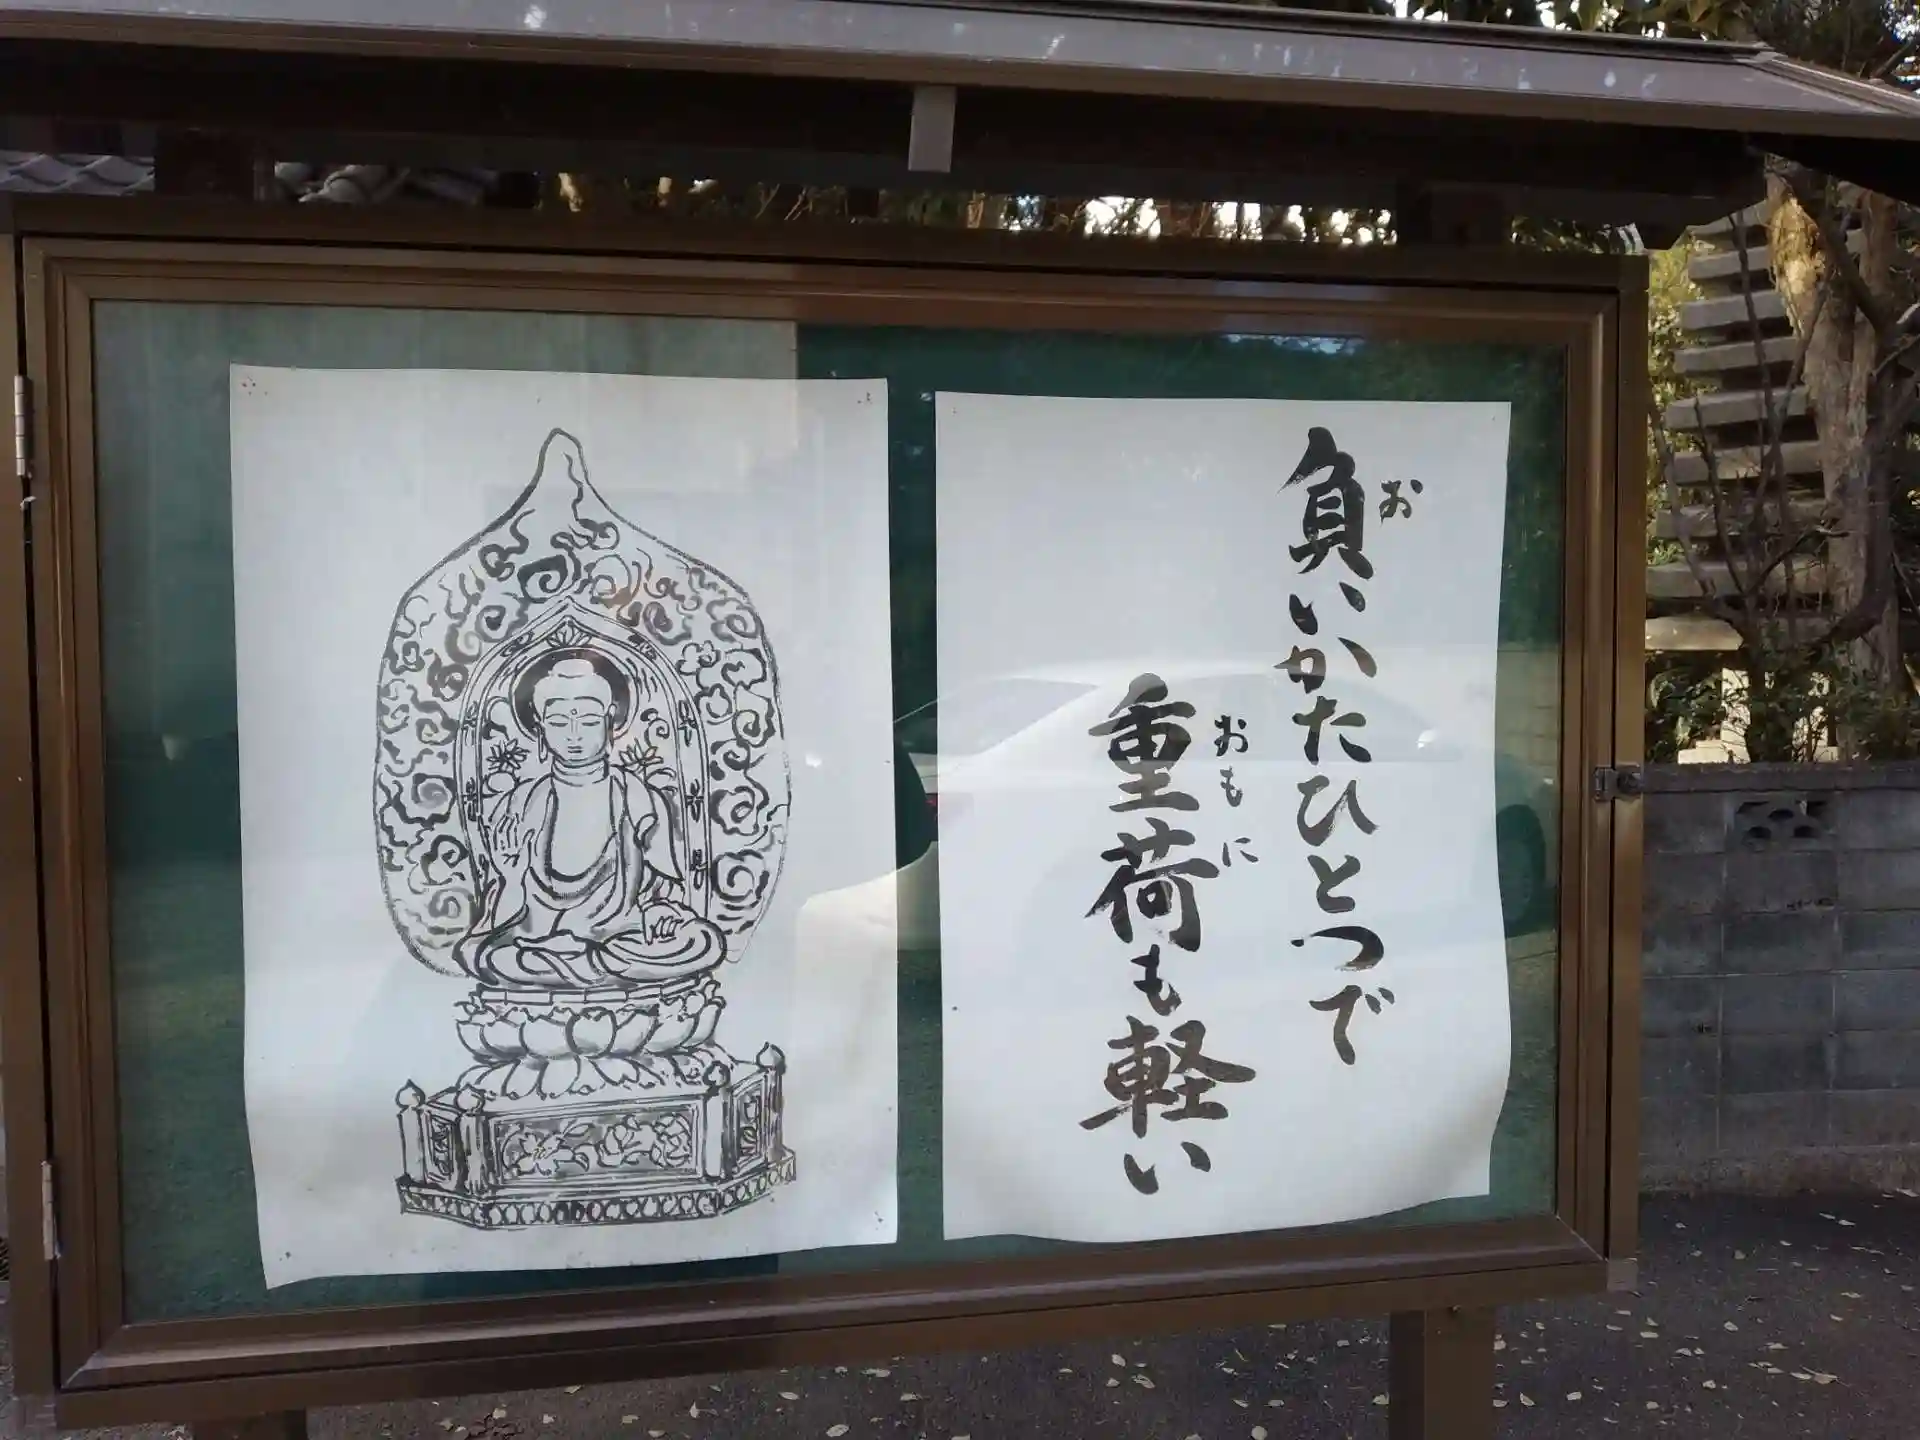 負いかたひとつで
重荷も軽い
お
おもに